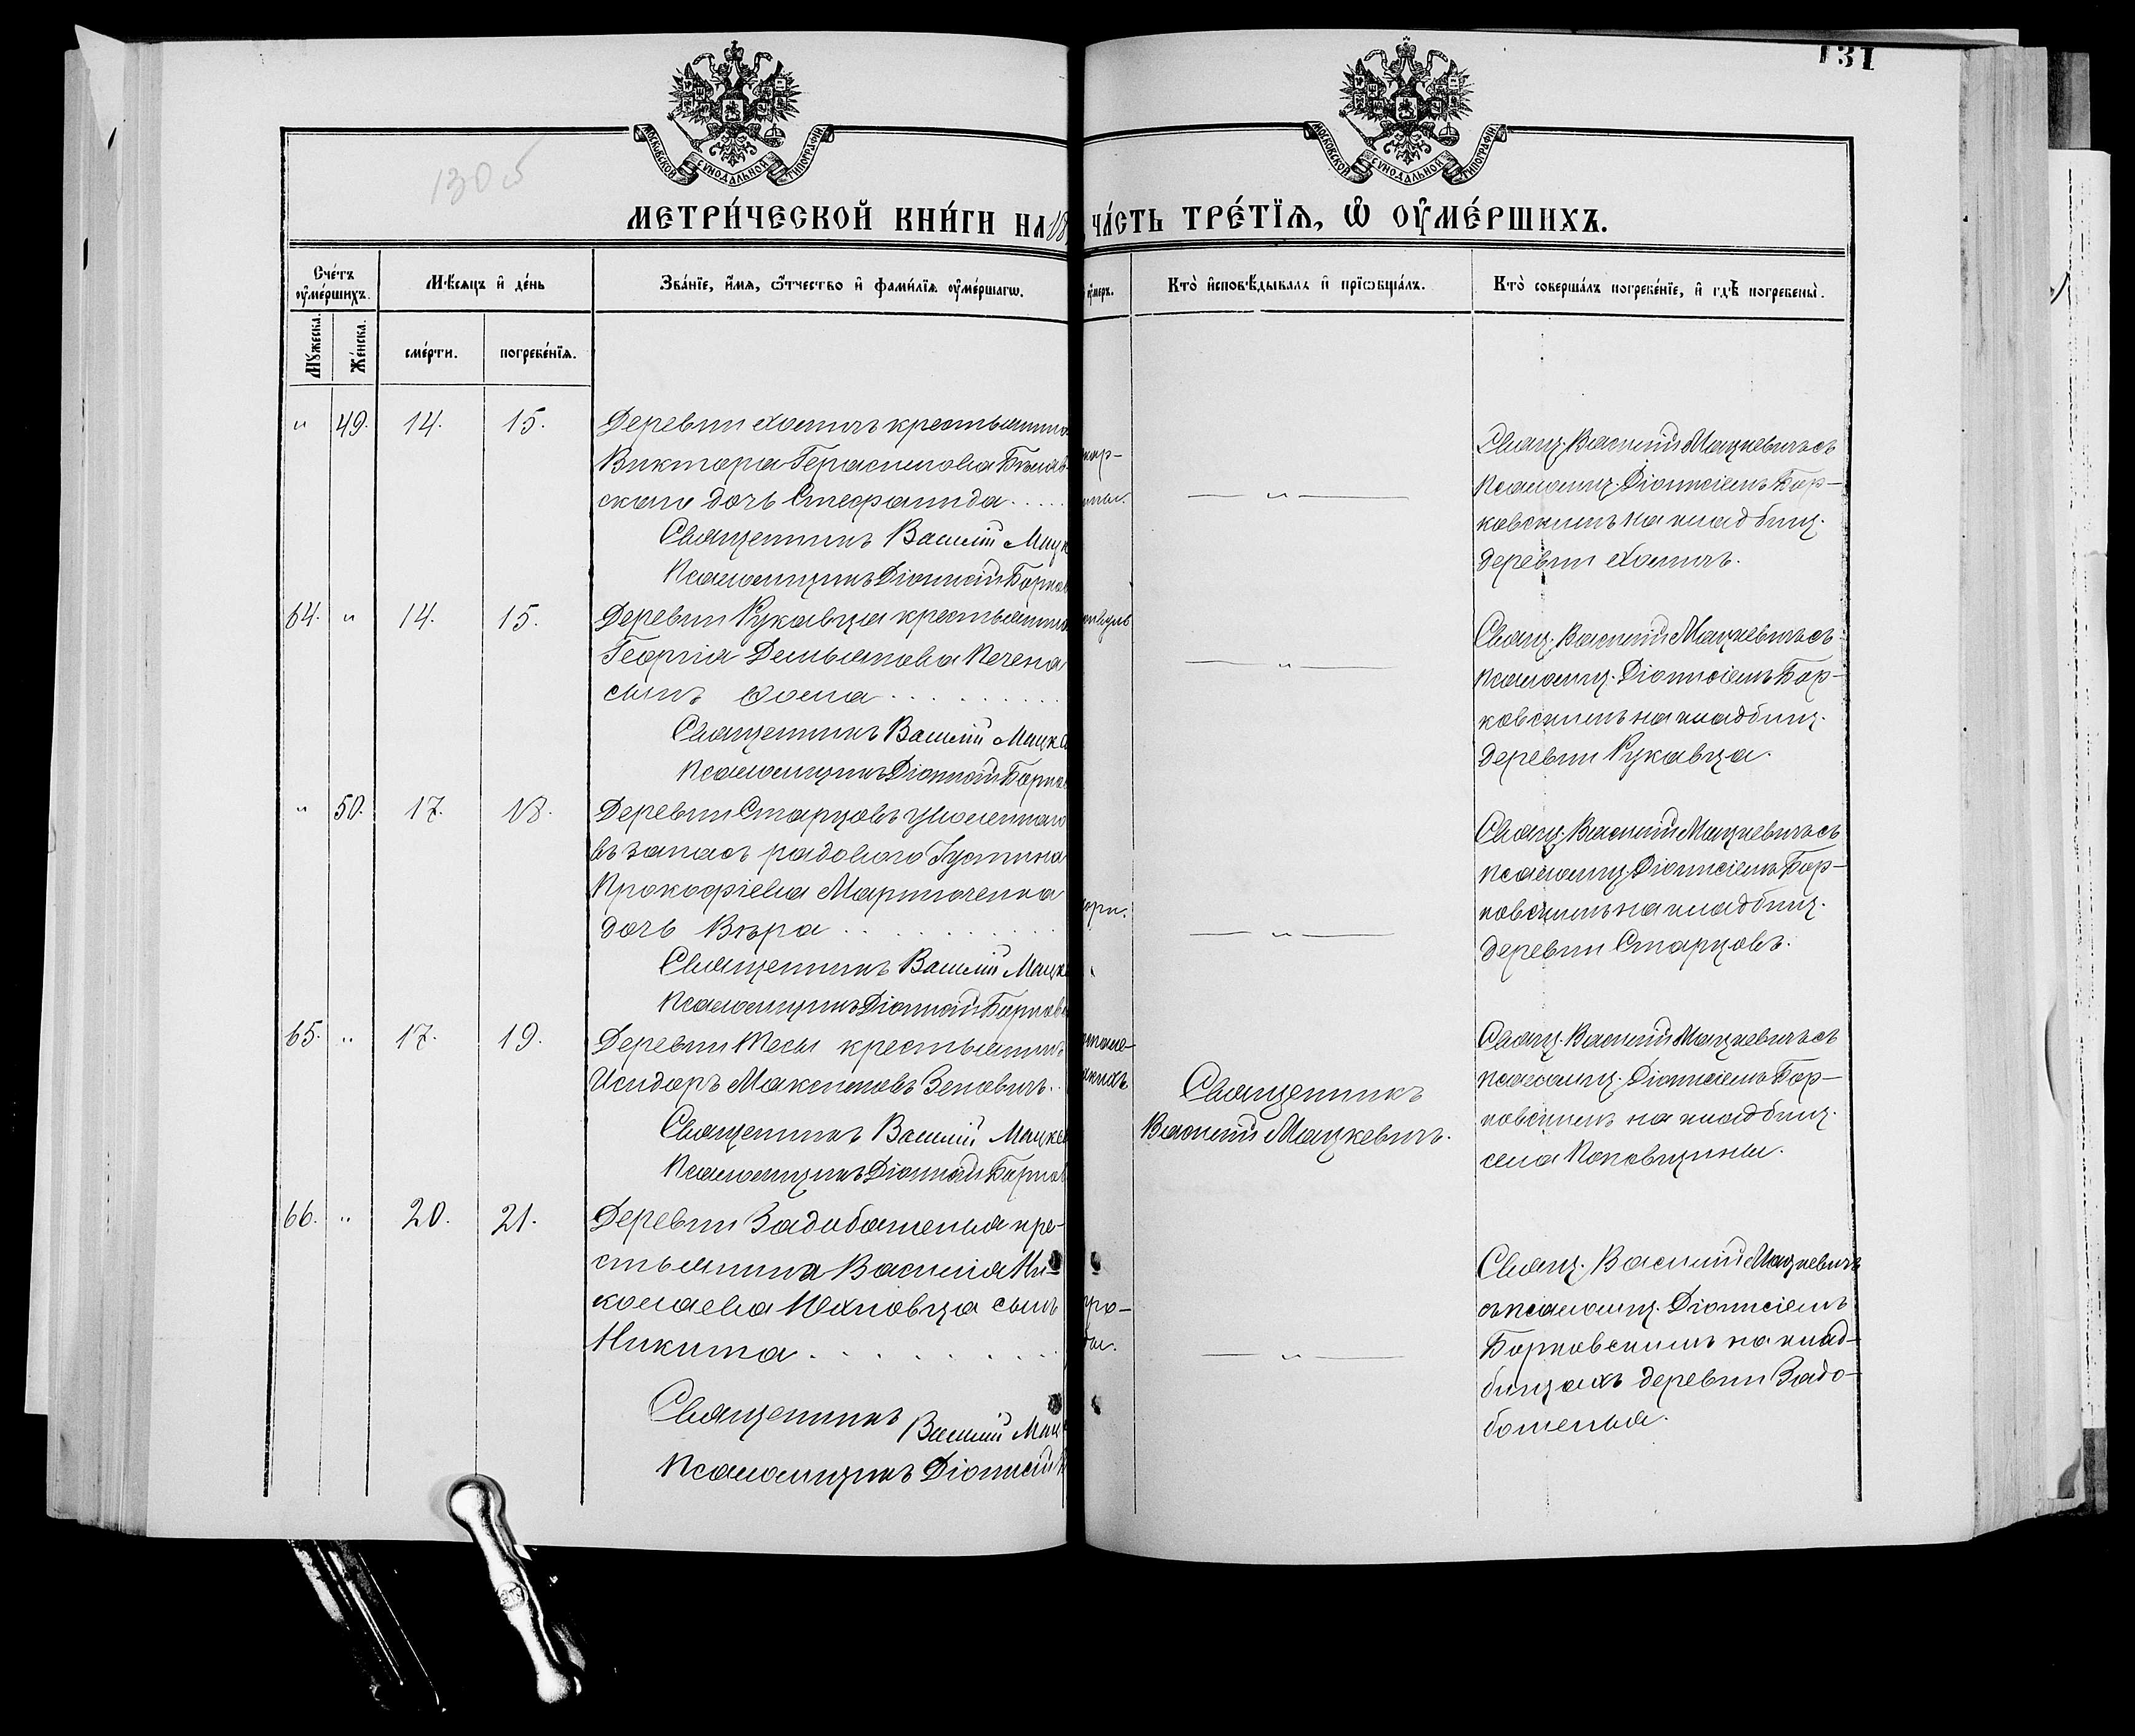 131
130 об
МОСКОВСКОЙ СУНОДАЛЬНОЙ ТИПОГРАФІИ
МОСКОВСКОЙ СУНОДАЛЬНОЙ ТИПОГРАФІИ
МЕТРИ́ЧЕСКОЙ КНИ́ГИ НА 18
ЧА́СТЬ ТРЕ́ТЇѦ, Ѡ҆ ОУ҆МЕ́РШИХЪ.
Сче́тъ оу҆ме́ршихъ.
Мѣ́сѧцъ и҆ де́нь
Зва́нїе, и҆́мѧ, ѻ҆́тчество и҆ фами́лїѧ оу҆ме́ршагѡ.
оу҆меръ.
Кто̀ и҆сповѣ́дывалъ и҆ прїѡбща́лъ.
Кто̀ соверша́лъ погребе́нїе, и҆ гдѣ̀ погребены̀.
Мꙋ́жеска.
Же́нска.
сме́рти.
погребе́нїѧ.
" 49. 14. 15.
Деревни Хотичъ крестьянина
Виктора Герасимова
скаго дочь Стефанида . . . . .
Священникъ Василій Мацк
Псаломщикъ Діонисій Борков
— " —
Свящ. Василій Мацкевичъ съ
псаломщ. Діонисіемъ Бор-
ковскимъ на кладбищ.
деревни Хотичъ.
64. " 14. 15.
Деревни Рукавца крестьянина
Георгія Демьянова Печена
сынъ Ѳома . . . . . . . .
Священникъ Василій Мацке
Псаломщикъ Діонисій Борков
— " —
Свящ. Василій Мацкевичъ съ
псаломщ. Діонисіемъ Бор-
ковскимъ на кладбищ.
деревни Рукавца.
" 50. 17. 18.
Деревни Старцовъ уволеннаго
въ запасъ рядового Іустина
Прокофіева Мартюченка
дочь Вѣра . . . . . . . .
Священникъ Василій Мацке
Псаломщикъ Діонисій Борковс
— " —
Свящ. Василій Мацкевичъ съ
псаломщ. Діонисіемъ Бор-
ковскимъ на кладбищ.
деревни Старцовъ.
65. " 17. 19.
Деревни Тесы крестьянинъ
Исидоръ Максимовъ Зеновичъ . .
Священникъ Василій Мацкев
Псаломщикъ Діонисій Борков
Священникъ
Василій Мацкевичъ.
Свящ. Василій Мацкевичъ съ
псаломщ. Діонисіемъ Бор-
ковскимъ на кладбищ.
села Поповщины.
66. " 20. 21.
Деревни Задобошенья кре-
стьянина Василія Ни-
колаева Юхновца сынъ
Никита . . . . . . . . .
Священникъ Василій Мац
Псаломщикъ Діонисій Б
— " —
Свящ. Василій Мацкевичъ
съ псаломщ. Діонисіемъ
Борковскимъ на клад-
бищахъ деревни Задо-
бошенья.